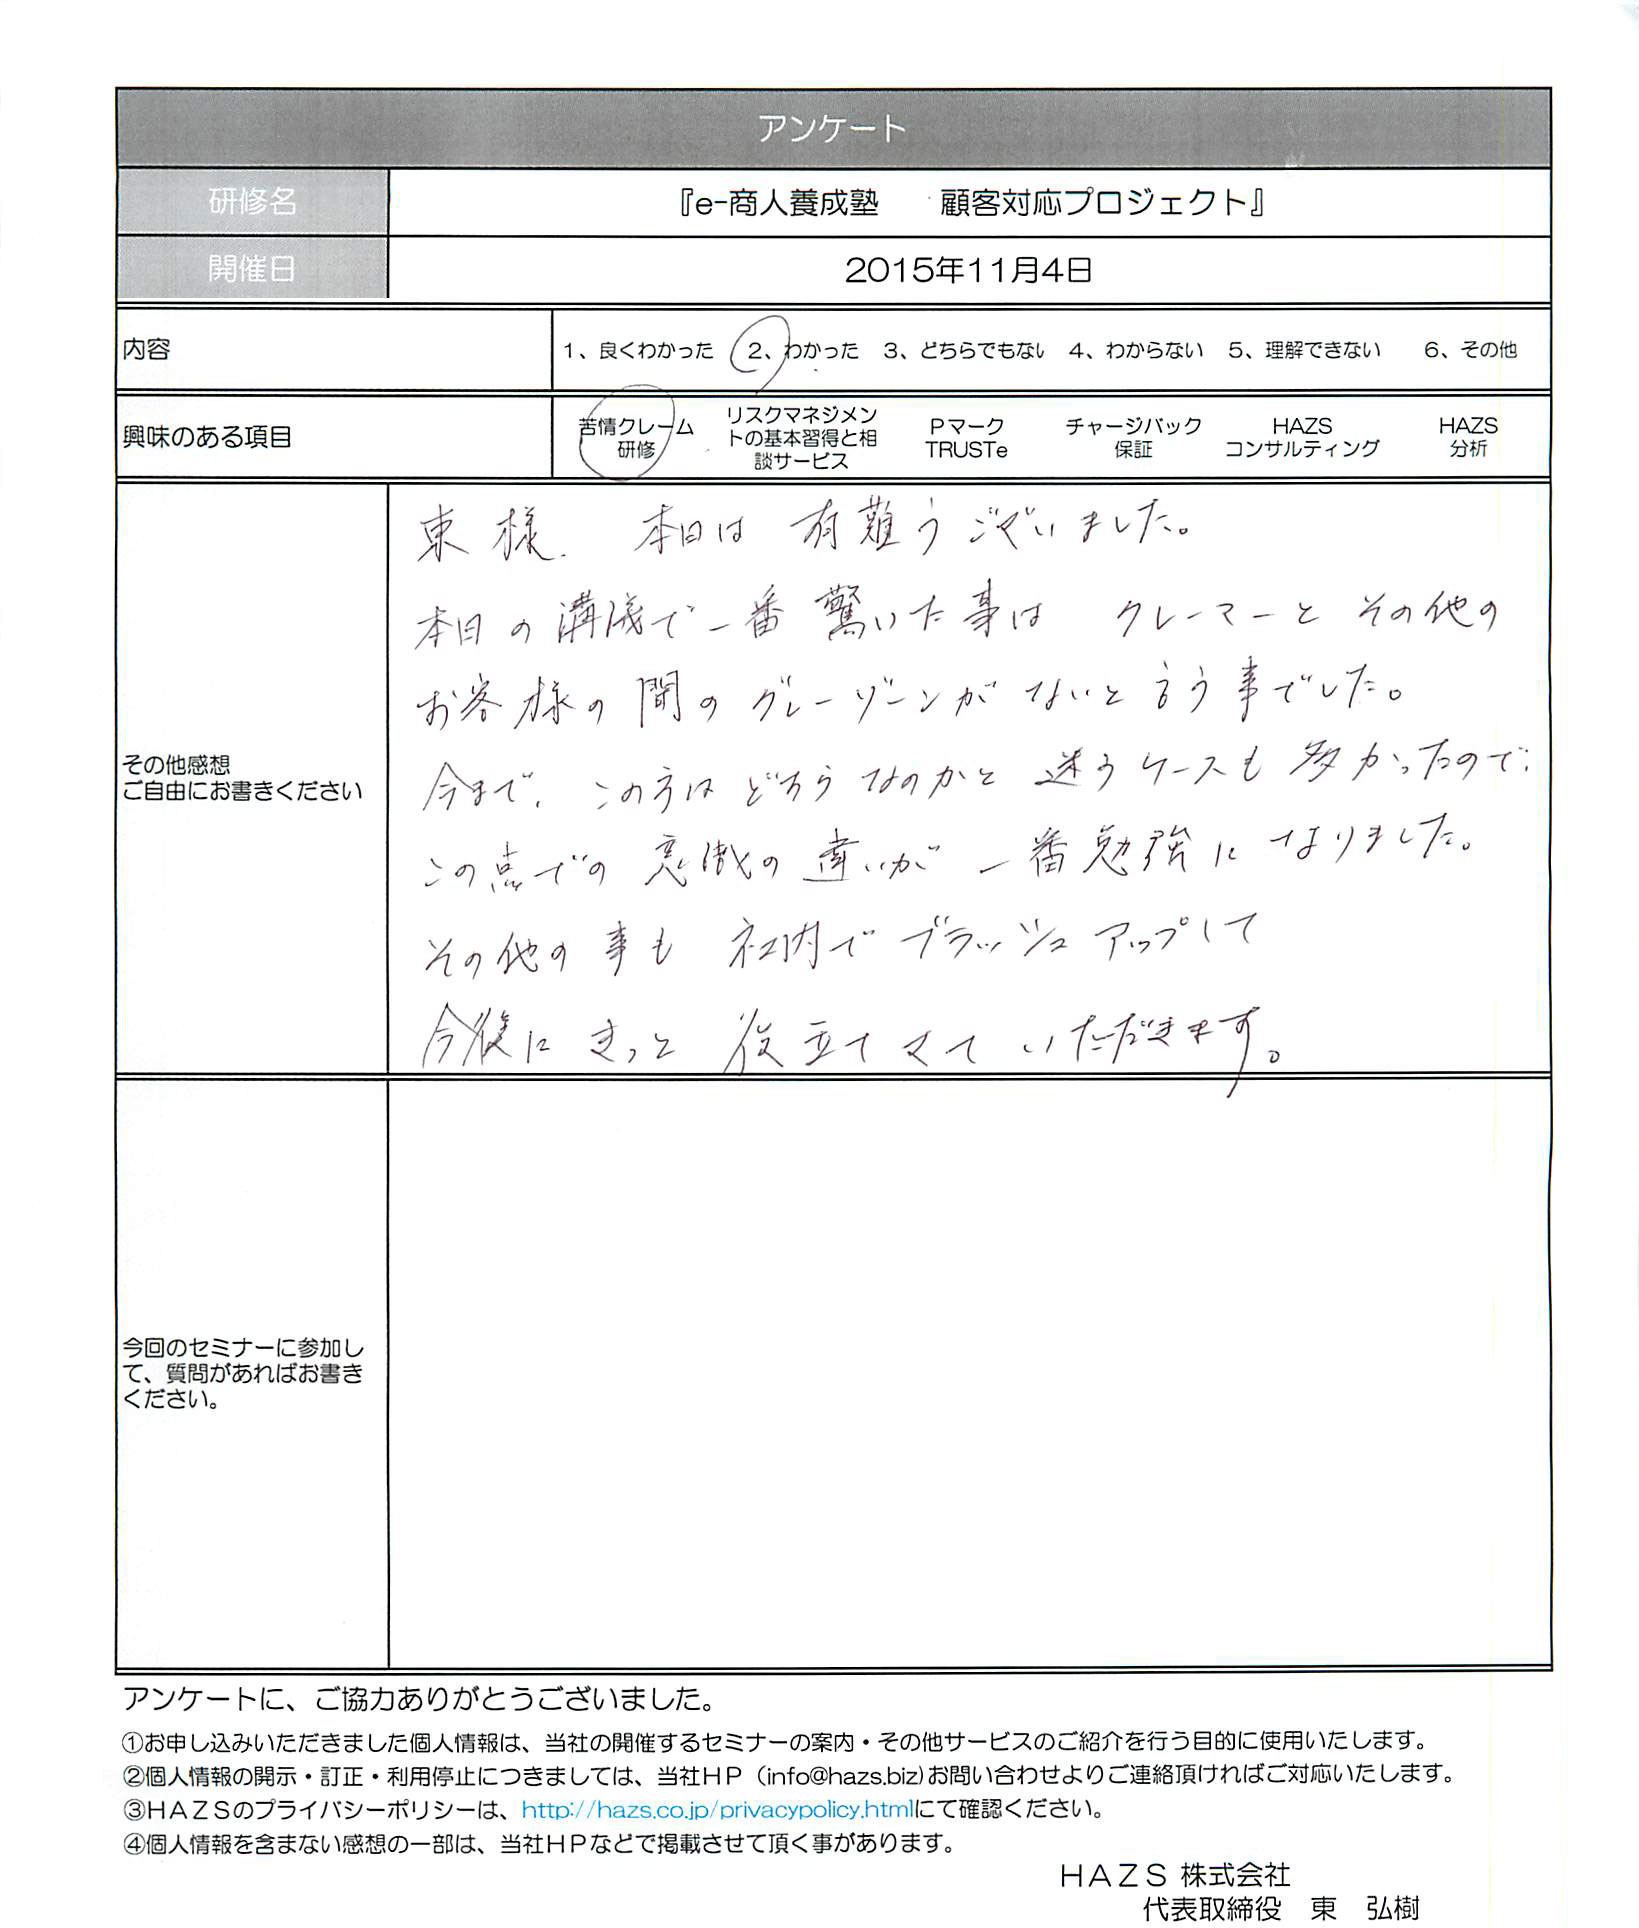 アンケート
研修名 『e-商人養成塾　顧客対応プロジェクト』
開催日 2015年11月4日
内容 1、良くわかった 2、わかった 3、どちらでもない 4、わからない 5、理解できない 6、その他
興味のある項目 苦情クレーム研修 リスクマネジメントの基本習得と相談サービス PマークTRUSTe チャージバック保証 HAZSコンサルティング HAZS分析
その他感想
ご自由にお書きください
東様. 本日は 有難うございました。
本日の講義で一番驚いた事は クレーマーと その他の
お客様の間のグレーゾーンがないと言う事でした。
今まで、この方はどちらなのかと迷うケースも多かったので、
この点での意識の違いが一番勉強になりました。
その他の事も 社内でブラッシュアップして
今後にきっと役立てさせていただきます。
今回のセミナーに参加し
て、質問があればお書き
ください。
アンケートに、ご協力ありがとうございました。
①お申し込みいただきました個人情報は、当社の開催するセミナーの案内・その他サービスのご紹介を行う目的に使用いたします。
②個人情報の開示・訂正・利用停止につきましては、当社HP（info@hazs.biz)お問い合わせよりご連絡頂ければご対応いたします。
③HAZSのプライバシーポリシーは、http://hazs.co.jp/privacypolicy.htmlにて確認ください。
④個人情報を含まない感想の一部は、当社HPなどで掲載させて頂く事があります。
HAZS 株式会社
代表取締役　東　弘樹